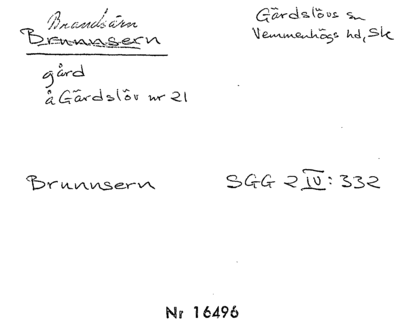 Brandsärn
Brunnsern
Gärdslövs sn
Vemmenhögs hd, Sk
gård
å Gärdslöv nr 21
Brunnsern SGG 2 IV: 332
Nr 16496